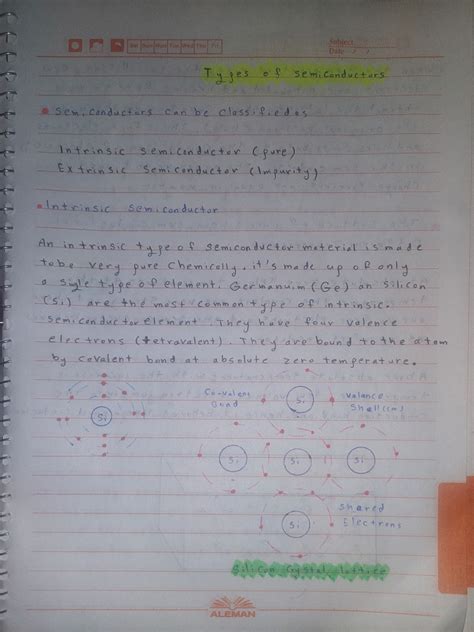 Subject:
Date: / /
Types of semiconductors
Semiconductors can be classified as
Intrinsic semiconductor (pure)
Extrinsic semiconductor (Impurity)
Intrinsic semiconductor
An intrinsic type of semiconductor material is made
to be very pure chemically. it's made up of only
a single type of element. Germanuim (Ge) an Silicon
(Si) are the most common type of intrinsic.
semiconductor element. They have four valence
electrons (tetravalent). They are bound to the atom
by covalent bond at absolute zero temperature.
Si
Co-valent
Si
Valance
Shell (
Si
Si
Si
Si
Shared
Electrons
Silicon crystal lattice
ALEMAN